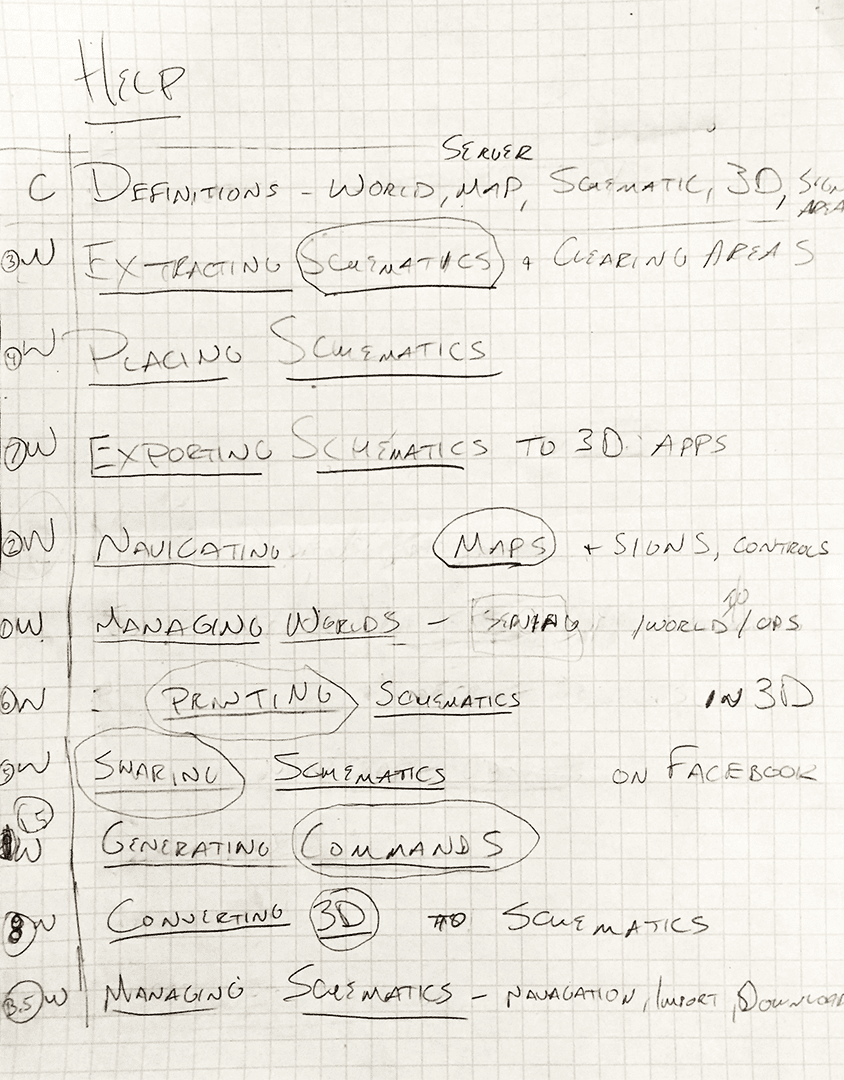 HELP
SERVER
C DEFINITIONS - WORLD, MAP, SCHEMATIC, 3D, SIGN
AREA
3 W EXTRACTING SCHEMATICS + CLEARING AREAS
4 W PLACING SCHEMATICS
7 W EXPORTING SCHEMATICS TO 3D APPS
2 W NAVIGATING MAPS + SIGNS, CONTROLS
W MANAGING WORLDS - /WORLD/OPS
6 W : PRINTING SCHEMATICS IN 3D
5 W SHARING SCHEMATICS ON FACEBOOK
1.5
W GENERATING COMMANDS
8 W CONVERTING 3D TO SCHEMATICS
3.5 W MANAGING SCHEMATICS - NAVAGATION, IMPORT, DOWNLOAD